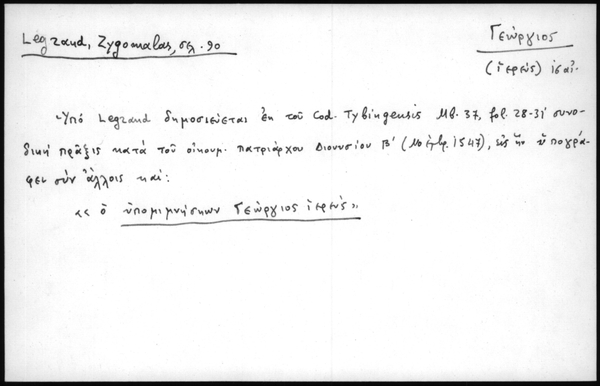 Legrand, Zygomalas, σελ. 90
Γεώργιος
(ἱερεύς) ις αἰ.
Ὑπό Legrand δημοσιεύεται ἐκ τοῦ Cod. Tybingensis Mb. 37, fol. 28-31 συνο-
δική πρᾶξις κατά τοῦ οἰκουμ. πατριάρχου Διονυσίου Β' (Νοέμβρ. 1547), εἰς ἥν ὑπογρά-
φει σύν ἄλλοις καί:
«ὁ ὑπομιμνήσκων Γεώργιος ἱερεύς».